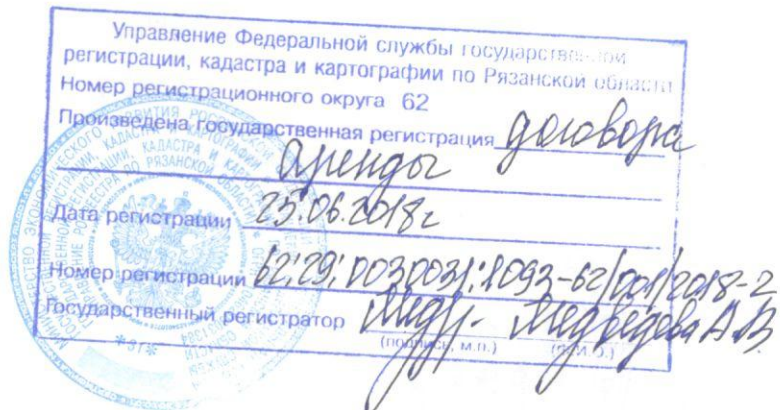 Управление Федеральной службы государственной
регистрации, кадастра и картографии по Рязанской области
Номер регистрационного округа 62
Произведена государственная регистрация договора
аренды
Дата регистрации 25.06.2018г
Номер регистрации 62:29:0030031:1093-62/001/2018-2
Государственный регистратор Медв. Медведева А.В.
(подпись, м.п.) (Ф.И.О.)